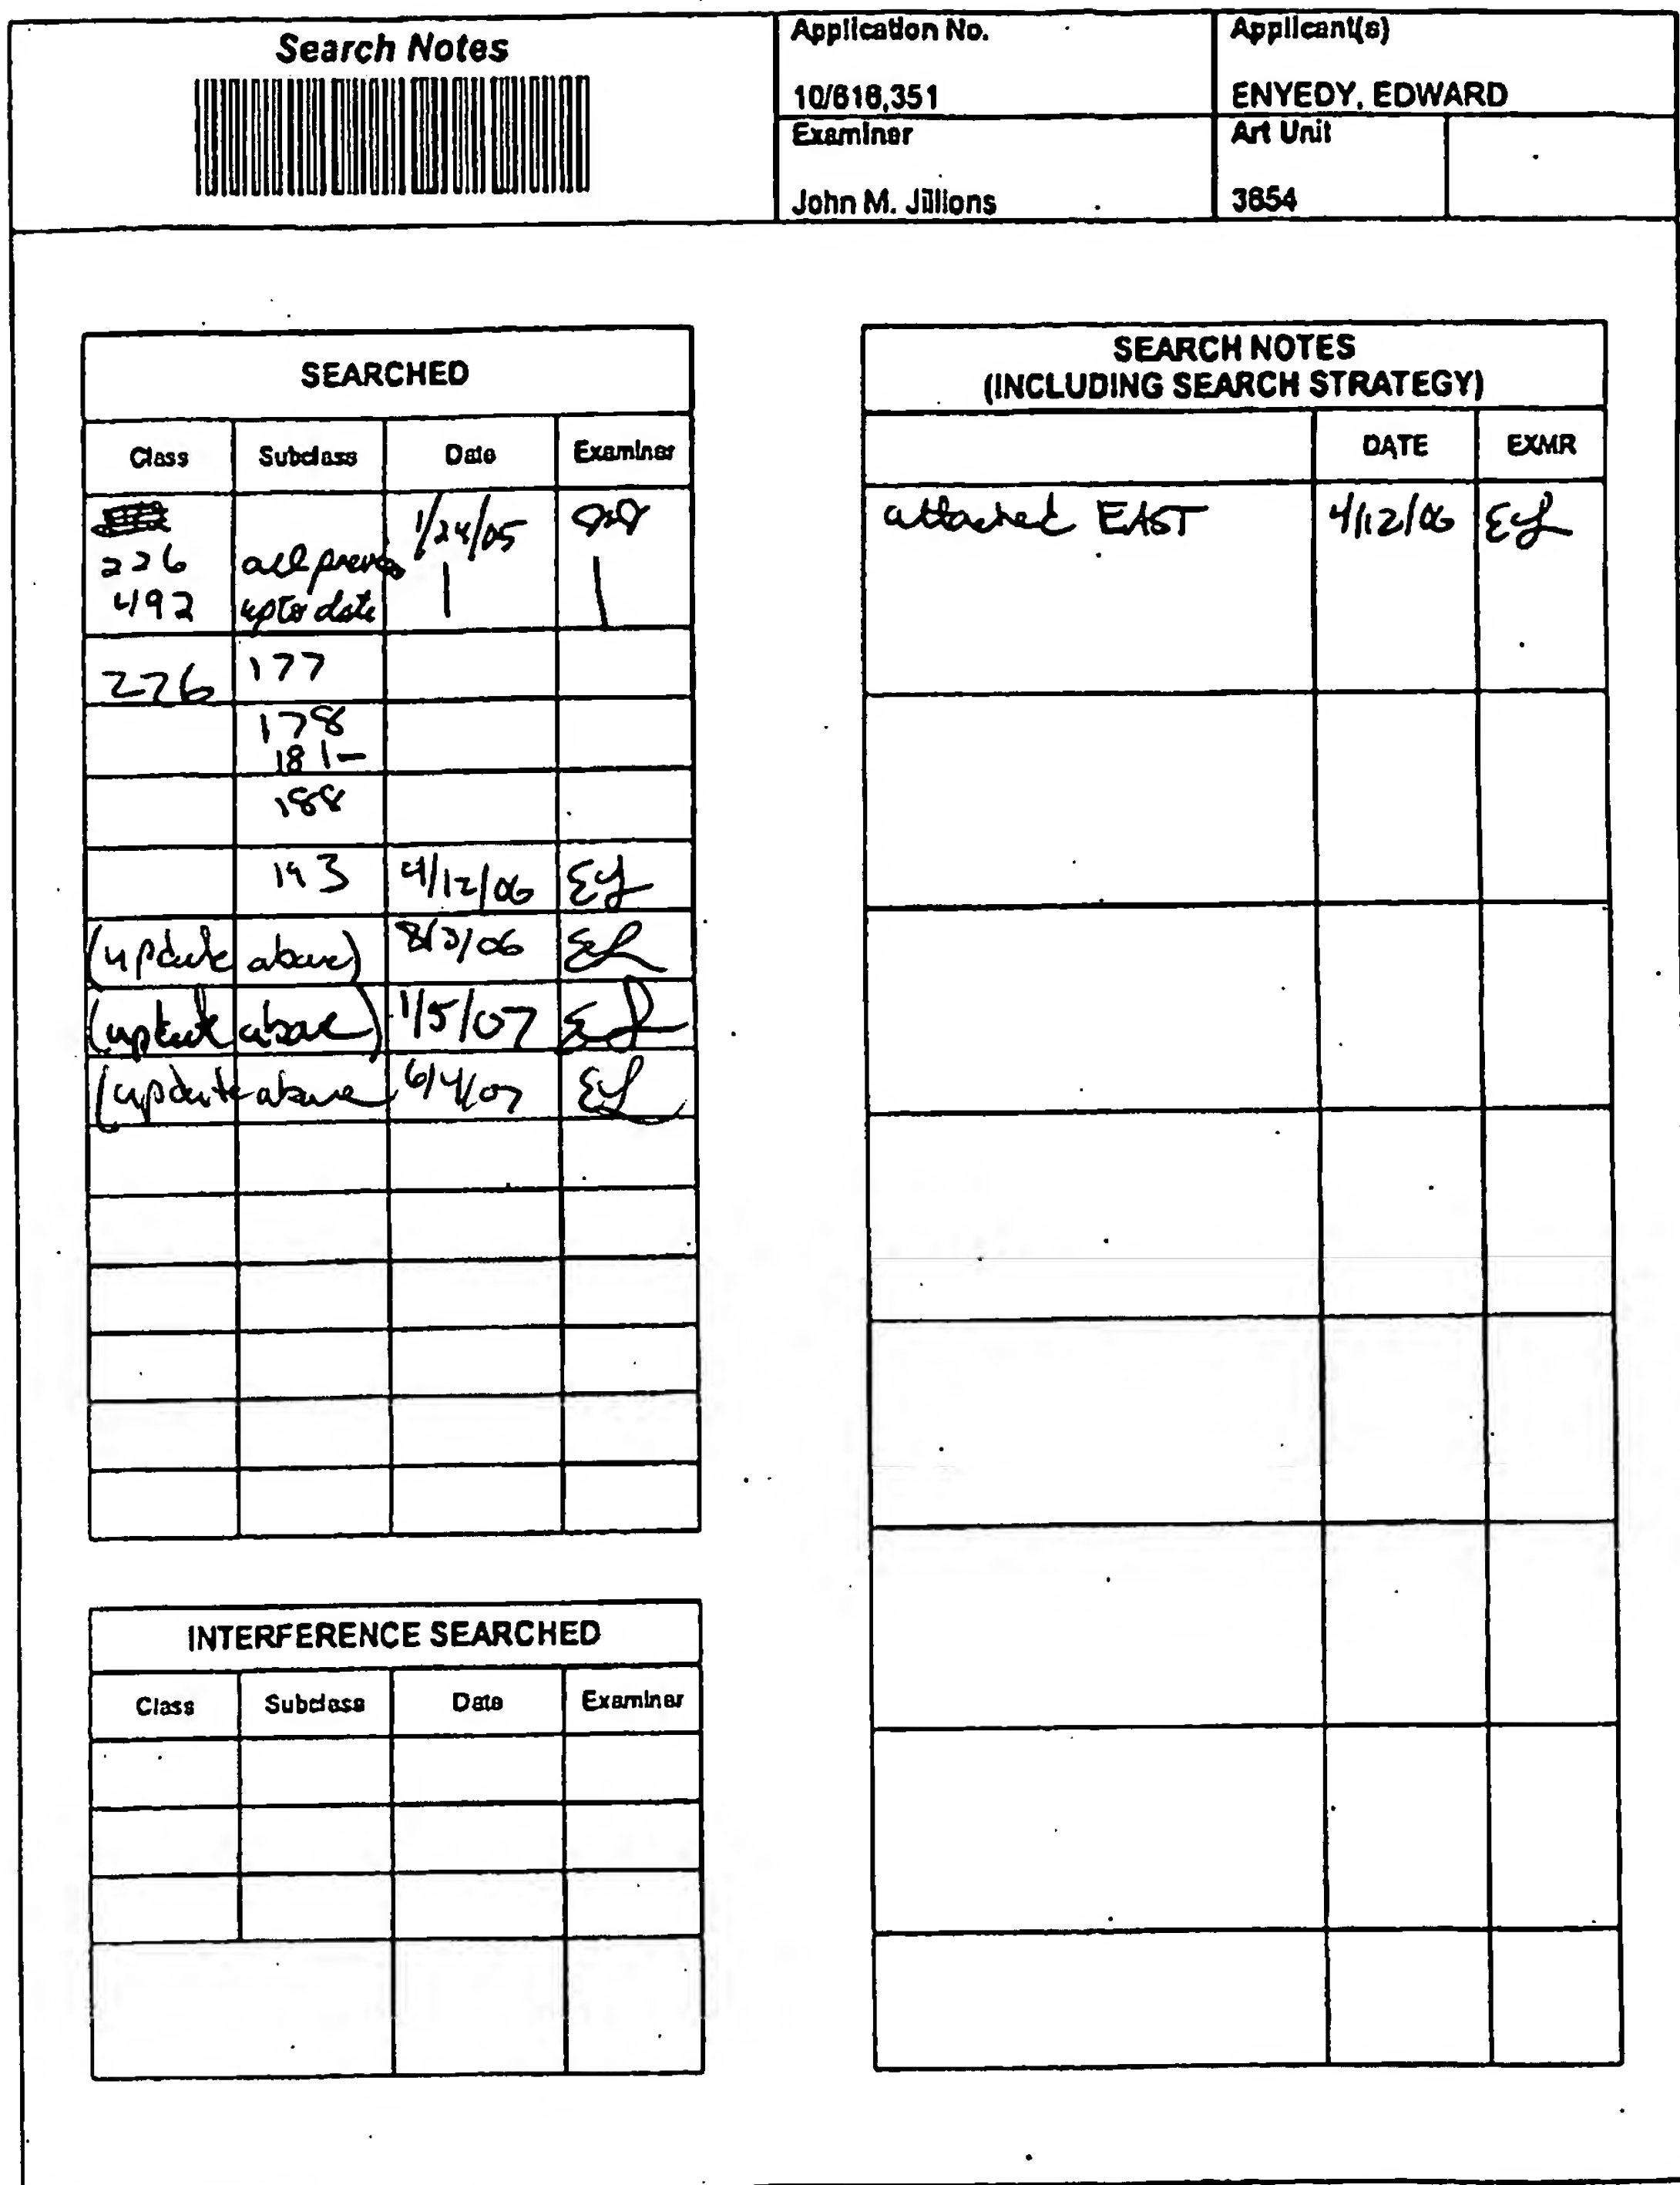 Search Notes
Application No.
10/616,351
Applicant(s)
ENYEDY, EDWARD
Examiner
John M. Jillions
Art Unit
3654
SEARCHED
Class Subclass Date Examiner
1/24/05
226 all prev
492 up to date
226 177
178
181-
188
193 4/12/06 EL
(update above) 8/3/06 EL
(update above) 1/5/07 EL
(update above 6/4/07 EL
INTERFERENCE SEARCHED
Class Subclass Date Examiner
SEARCH NOTES
(INCLUDING SEARCH STRATEGY)
DATE EXMR
attached EAST 4/12/06 EL